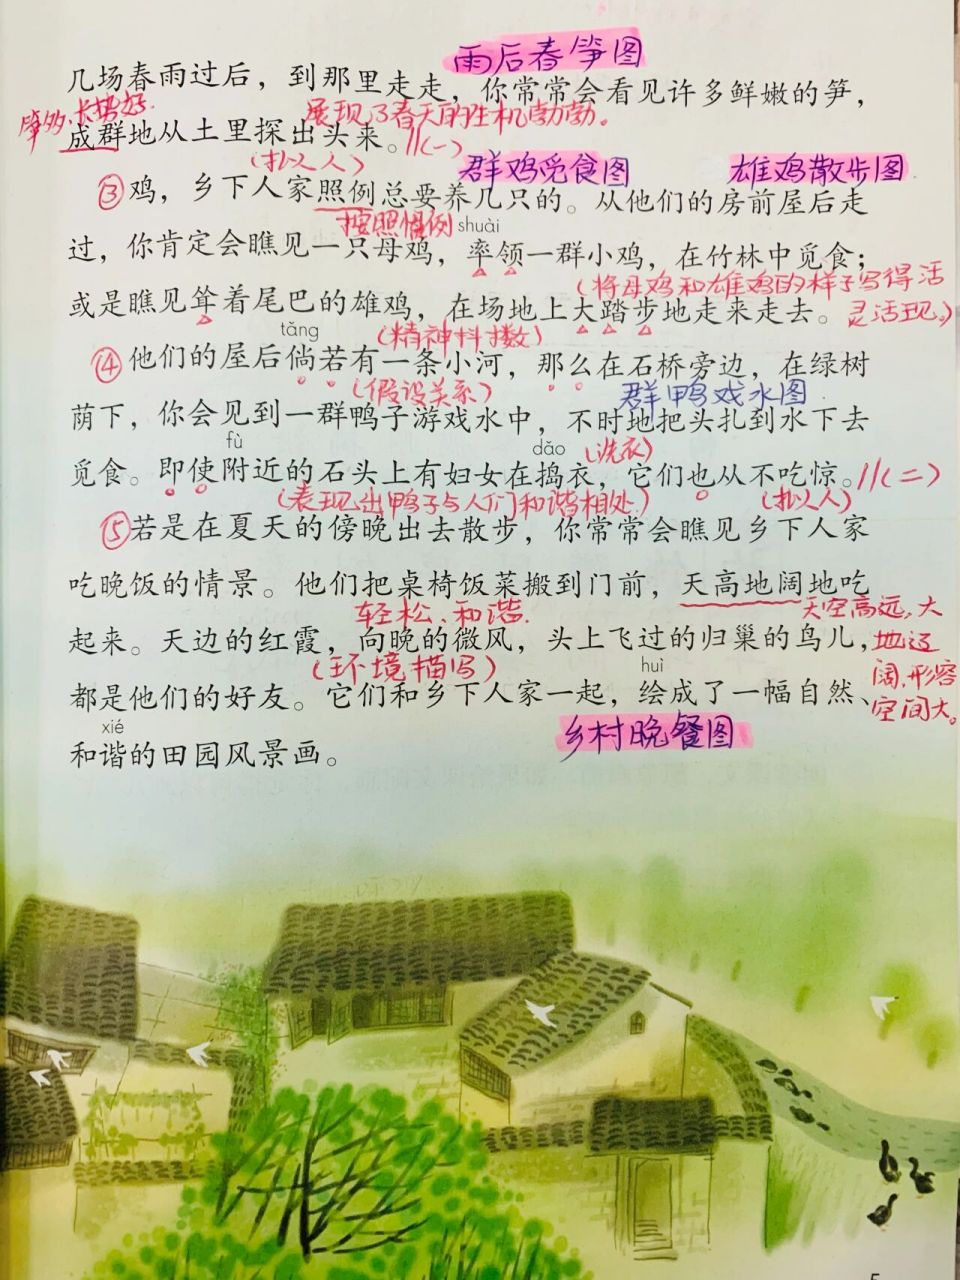 雨后春笋图
几场春雨过后，到那里走走，你常常会看见许多鲜嫩的笋，
笋多、长势好
展现了春天的生机勃勃。
成群地从土里探出头来。//(一)
(拟人)
群鸡觅食图
雄鸡散步图
③鸡，乡下人家照例总要养几只的。从他们的房前屋后走
按照惯例
shuài
过，你肯定会瞧见一只母鸡，率领一群小鸡，在竹林中觅食；
(将母鸡和雄鸡的样子写得活
或是瞧见耸着尾巴的雄鸡，在场地上大踏步地走来走去。
灵活现。)
tǎng
(精神抖擞)
④他们的屋后倘若有一条小河，那么在石桥旁边，在绿树
(假设关系)
群鸭戏水图
荫下，你会见到一群鸭子游戏水中，不时地把头扎到水下去
fù
dǎo
(洗衣)
觅食。即使附近的石头上有妇女在捣衣，它们也从不吃惊。//(二)
(表现出鸭子与人们和谐相处)
(拟人)
⑤若是在夏天的傍晚出去散步，你常常会瞧见乡下人家
吃晚饭的情景。他们把桌椅饭菜搬到门前，天高地阔地吃
轻松、和谐.
天空高远，大
起来。天边的红霞，向晚的微风，头上飞过的归巢的鸟儿，
地辽
(环境描写)
huì
阔,形容
都是他们的好友。它们和乡下人家一起，绘成了一幅自然、
空间大。
xié
乡村晚餐图
和谐的田园风景画。
5